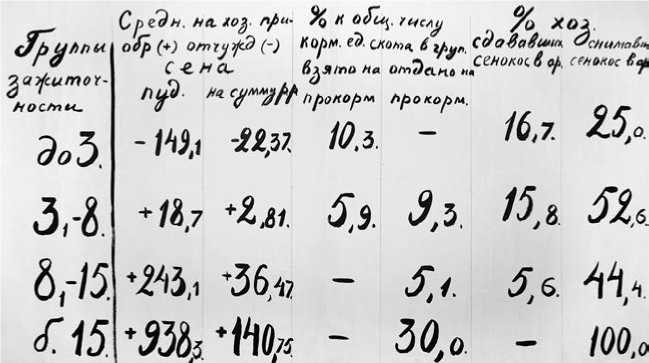 Группы зажиточ- ности | Средн. на хоз. при- обр (+) отчужд (-) сена | % к общ. числу корм. ед. скота в груп. | % хоз.
пуд. | на сумму рр | взято на прокорм | отдано на прокорм. | сдававших сенокос в ар. | снимавш сенокос в ар
до 3. | -149,1 | -22,37. | 10,3. | – | 16,7. | 25,0.
3,-8. | +18,7 | +2,81. | 5,9. | 9,3. | 15,8. | 52,6.
8,-15. | +243,1 | +36,47 | – | 5,1. | 5,6. | 44,4.
б. 15. | +938,3. | +140,75. | – | 30,0. | – | 100,0